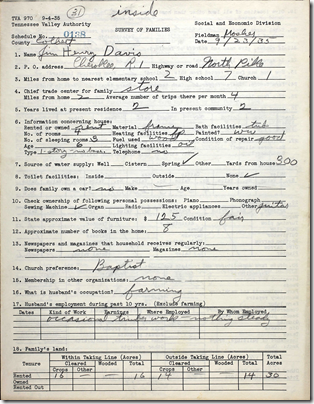 31 inside
TVA 970 9-4-35 Social and Economic Division
Tennessee Valley Authority SURVEY OF FAMILIES Fieldman Hughes
Schedule No. 0138 Date 9/23/35
County Colbert
1. Name Jim Henry Davis
2. P. O. address Cherokee, R 1 Highway or road North Pike
3. Miles from home to nearest elementary school 2 High school 7 Church 1
4. Chief trade center for family store
Miles from home 2 Average number of trips there per month 4
5. Years lived at present residence 2 In present community 2
6. Information concerning house:
Rented or owned rent Material frame Bath facilities tub
No. of rooms Heating facilities fp Painted?
No. of sleeping rooms 3 Fuel used wood Condition of repair good
Age 6 Lighting facilities oil
Type 1 story Telephone no
7. Source of water supply: Well Cistern Spring ✓ Other Yards from house 300
8. Toilet facilities: Inside Outside None ✓
9. Does family own a car? no Make Age Years owned
10. Check ownership of following personal possessions: Piano Phonograph
Sewing Machine Organ Radio Electric appliances Other
11. State approximate value of furniture: $ 125 Condition fair
12. Approximate number of books in the home: 8
13. Newspapers and magazines that household receives regularly:
Newspapers none Magazines none
14. Church preference: Baptist
15. Membership in organizations: none
16. What is husband's occupation? farming
17. Husband's employment during past 10 yrs. (Exclude farming)
Dates Kind of Work Earnings Where Employed By Whom Employed
occasional timber work - nothing steady
18. Family's land:
Within Taking Line (Acres) Outside Taking Line (Acres) Total
Tenure Cleared Wooded Total Cleared Wooded Total Acres
Crops Other Crops Other
Rented 16 16 14 14 30
Owned
Rented Out